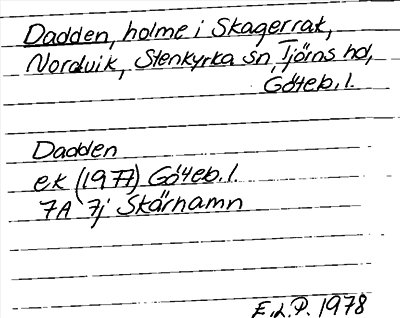 Dadden, holme i Skagerrak,
Nordvik, Stenkyrka sn, Tjörns hd,
Göteb. l.
Dadden
ek (1977) Göteb. l.
7A 7j Skärhamn
E.L.P. 1978